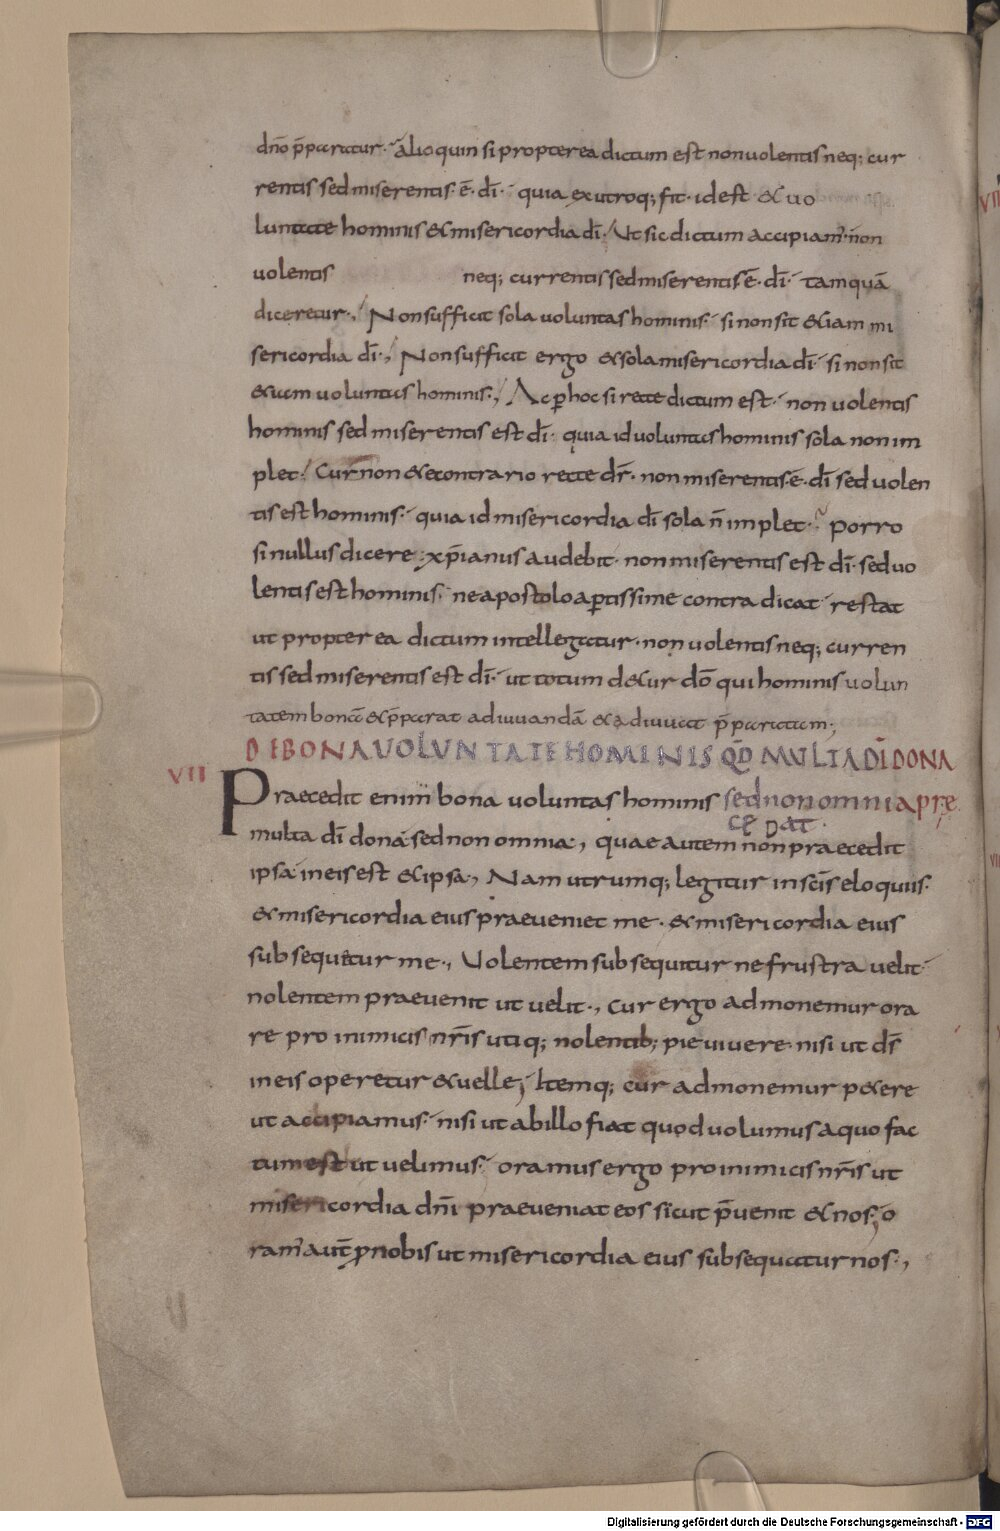 dn̄o p̄paratur. alioquin si propterea dictum est non uolentis neq; cur
rentis sed miserentis. ē. dī. quia ex utroq; fit. id est & uo
luntate hominis & misericordia dī. Ut sic dictum accipiam'. non
uolentis neq; currentis sed miserentis. ē. dī. tamquā
diceretur. Non sufficit sola uoluntas hominis. si non sit &iam mi
sericordia dī. Non sufficit ergo & sola misericordia dī. si non sit
&iam uoluntas hominis. Ac p hoc si recte dictum est. non uolentis
hominis sed miserentis est dī. quia id uoluntas hominis sola non im
plet. Cur non & econtrario recte dr̄. non miserentis. ē. dī sed uolen
tis est hominis. quia id misericordia dī sola n̄ implet. Porro
si nullus dicere xp̄ianus audebit. non miserentis est dī. sed uo
lentis est hominis. ne apostolo aptissime contradicat. restat
ut propterea dictum intellegatur. non uolentis neq; curren
tis sed miserentis est dī. ut totum d&ur dō qui hominis uolun
tatem bonā & p̄parat adiuuandā & adiuuat p̄paratam;
DE BONA UOLUNTATE HOMINIS QD MULTA DĪ DONA
VII Praecedit enim bona uoluntas hominis sed non omnia pre
cedat.
multa dī dona. sed non omnia. quae autem non praecedit
ipsa. in eis est & ipsa. Nam utrumq; legitur in scīs eloquiis.
& misericordia eius praeueniet me. & misericordia eius
subsequetur me. Uolentem subsequitur ne frustra uelit.
nolentem praeuenit ut uelit. Cur ergo admonemur ora
re pro inimicis nr̄is utiq; nolentib; pie uiuere. nisi ut ds̄
in eis operetur & uelle; Itemq; cur admonemur p&ere
ut accipiamus. nisi ut ab illo fiat quod uolumus a quo fac
tum est ut uelimus. oramus ergo pro inimicis nr̄is ut
misericordia dn̄i praeueniat eos sicut p̄uenit & nos; o
ram' aut̄ p nobis ut misericordia eius subsequatur nos.
Digitalisierung gefördert durch die Deutsche Forschungsgemeinschaft - DFG